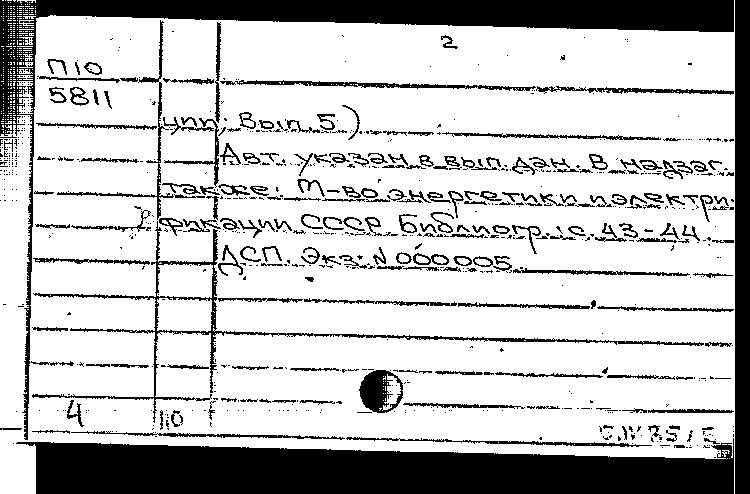 2
П10
5811
ции; Вып. 5)
Авт. указан в вып. дан. В надзаг.
также: М-во энергетики и электри-
фикации СССР. Библиогр.: с. 43-44.
ДСП. Экз. N 000005.
4 110